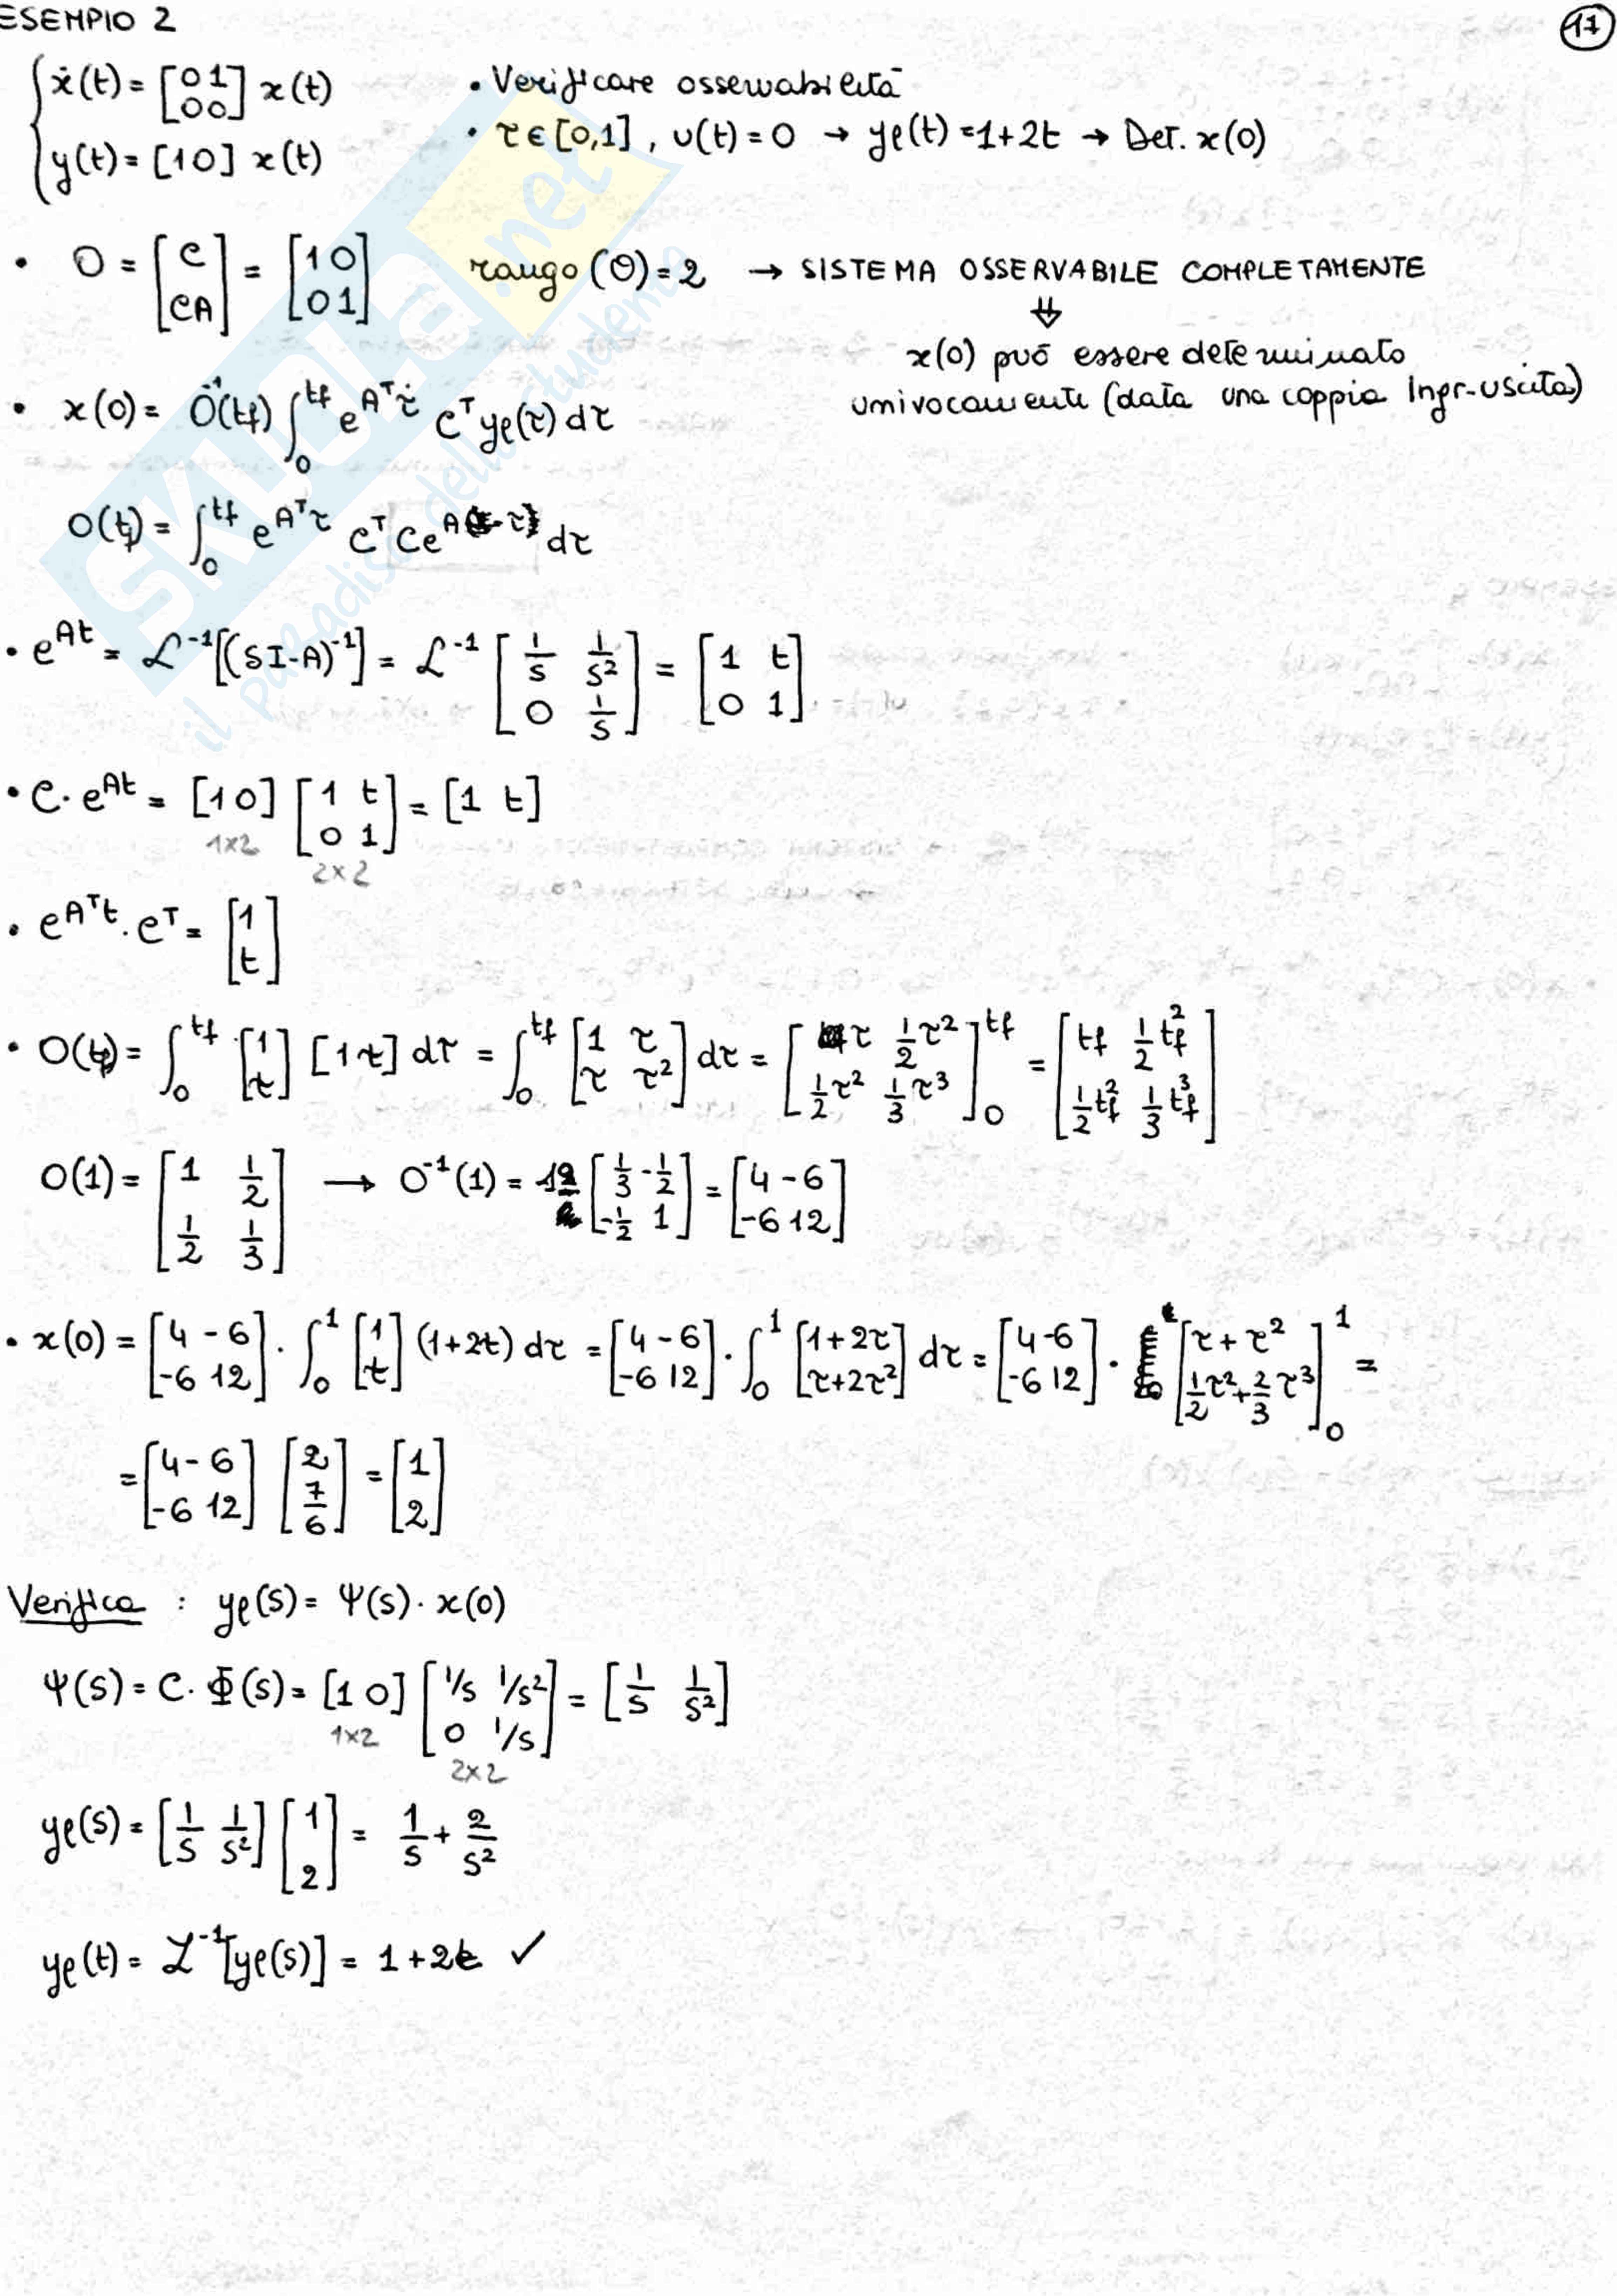 ESEMPIO 2
17
{ ẋ(t) = [0 1; 0 0] x(t)
y(t) = [1 0] x(t)
• Verificare osservabilità
• τ ∈ [0,1], u(t) = 0 → yℓ(t) = 1+2t → Det. x(0)
• O = [C; CA] = [1 0; 0 1] rango (O) = 2 → SISTEMA OSSERVABILE COMPLETAMENTE
⇓
x(0) può essere determinato
univocamente (data una coppia Ingr-uscita)
• x(0) = O⁻¹(tf) ∫₀^tf e^(Aᵀτ) Cᵀ yℓ(τ) dτ
O(tf) = ∫₀^tf e^(Aᵀτ) Cᵀ C e^(Aτ) dτ
• e^(At) = ℒ⁻¹[(SI-A)⁻¹] = ℒ⁻¹ [1/s 1/s²; 0 1/s] = [1 t; 0 1]
• C · e^(At) = [1 0] [1 t; 0 1] = [1 t]
1×2
2×2
• e^(Aᵀt) · Cᵀ = [1; t]
• O(tf) = ∫₀^tf [1; τ] [1 τ] dτ = ∫₀^tf [1 τ; τ τ²] dτ = [τ 1/2 τ²; 1/2 τ² 1/3 τ³]₀^tf = [tf 1/2 tf²; 1/2 tf² 1/3 tf³]
O(1) = [1 1/2; 1/2 1/3] → O⁻¹(1) = 12 [1/3 -1/2; -1/2 1] = [4 -6; -6 12]
• x(0) = [4 -6; -6 12] · ∫₀¹ [1; τ] (1+2t) dτ = [4 -6; -6 12] · ∫₀¹ [1+2τ; τ+2τ²] dτ = [4 -6; -6 12] · [τ+τ²; 1/2 τ² + 2/3 τ³]₀¹ =
= [4 -6; -6 12] [2; 7/6] = [1; 2]
Verifica : yℓ(s) = Ψ(s) · x(0)
Ψ(s) = C · Φ(s) = [1 0] [1/s 1/s²; 0 1/s] = [1/s 1/s²]
1×2
2×2
yℓ(s) = [1/s 1/s²] [1; 2] = 1/s + 2/s²
yℓ(t) = ℒ⁻¹[yℓ(s)] = 1+2t ✓
SKUOLA.net
il paradiso dello studente